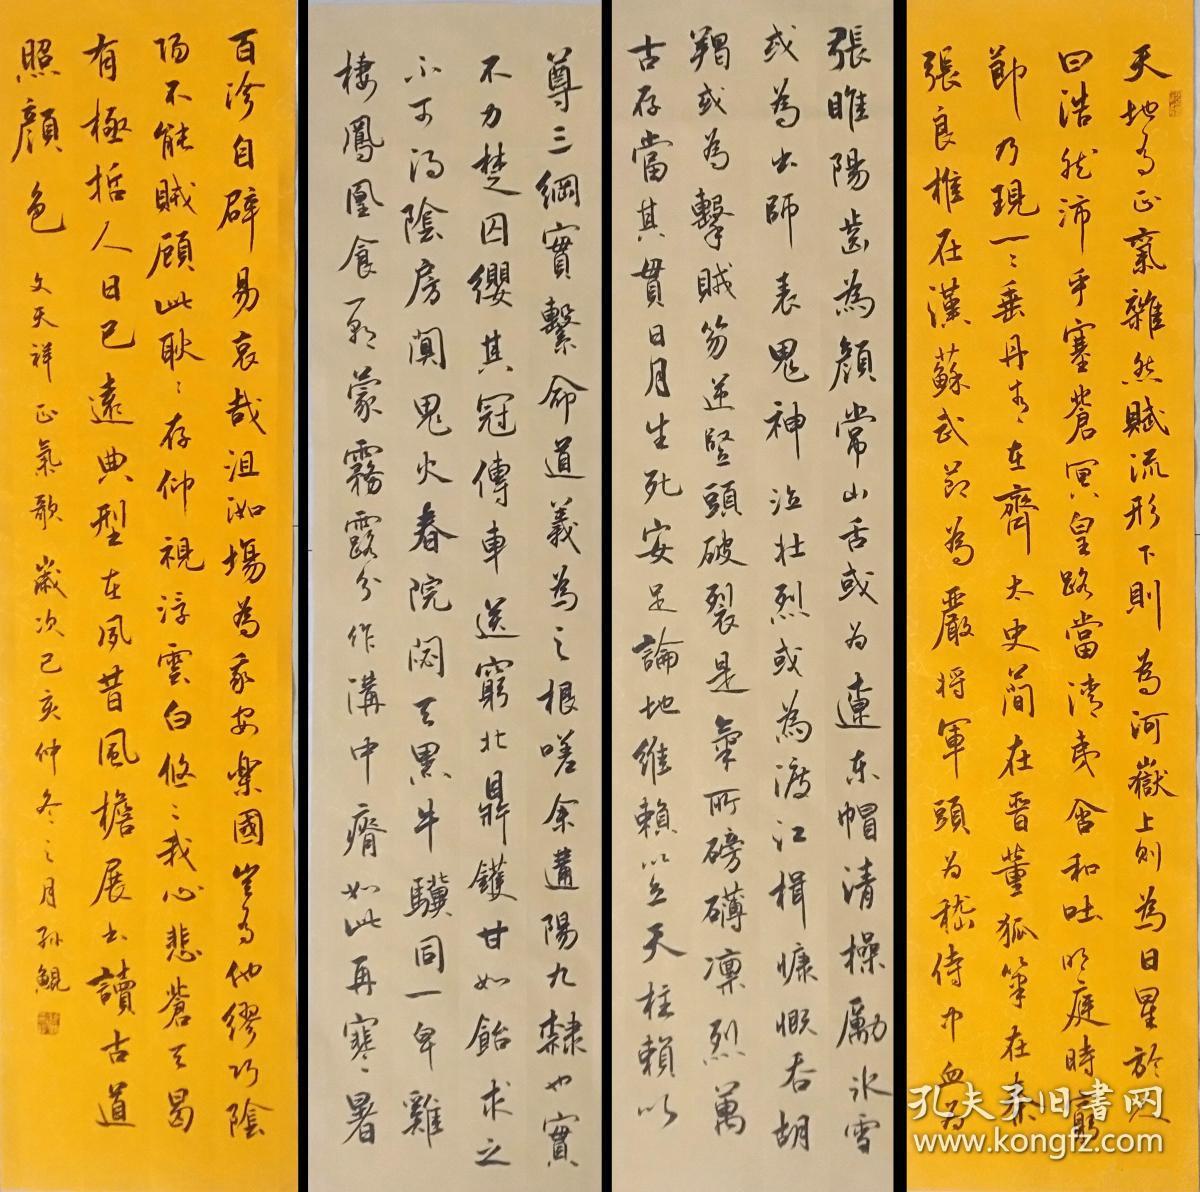 天地有正氣雜然賦流形下則為河嶽上則為日星於人
曰浩然沛乎塞蒼冥皇路當清夷含和吐明庭時窮
節乃現一〻垂丹青在齊太史簡在晉董狐筆在秦
張良椎在漢蘇武節為嚴將軍頭為嵇侍中血為
張睢陽齒為顏常山舌或為遼東帽清操厲冰雪
或為出師表鬼神泣壯烈或為渡江楫慷慨吞胡
羯或為擊賊笏逆豎頭破裂是氣所磅礴凜烈萬
古存當其貫日月生死安足論地維賴以立天柱賴以
尊三綱實繫命道義為之根嗟余遘陽九隸也實
不力楚囚纓其冠傳車送窮北鼎鑊甘如飴求之
不可得陰房闃鬼火春院閟天黑牛驥同一皁雞
棲鳳凰食一朝蒙霧露分作溝中瘠如此再寒暑
百沴自辟易哀哉沮洳場為我安樂國豈有他繆巧陰
陽不能賊顧此耿〻存仰視浮雲白悠〻我心悲蒼天曷
有極哲人日已遠典型在夙昔風檐展書讀古道
照顏色 文天祥正氣歌 歲次己亥仲冬之月 孫鯤
孔夫子旧书网
www.kongfz.com